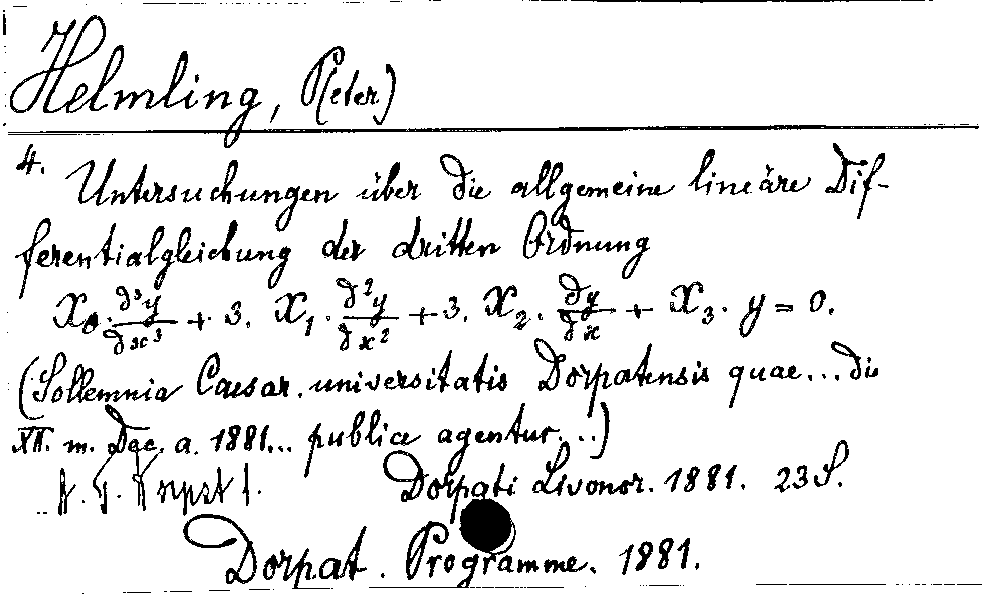 Helmling, P(eter)
4. Untersuchungen über die allgemeine lineäre Dif-
ferentialgleichung der dritten Ordnung
X₀ · ∂³y/∂x³ + 3. X₁ · ∂²y/∂x² + 3. X₂ · ∂y/∂x + X₃ · y = 0.
(Sollemnia Caesar. universitatis Dorpatensis quae... die
XII. m. Dec. a. 1881... publice agentur...)
Dorpati Livonor. 1881. 23 S.
Dorpat. Programme. 1881.